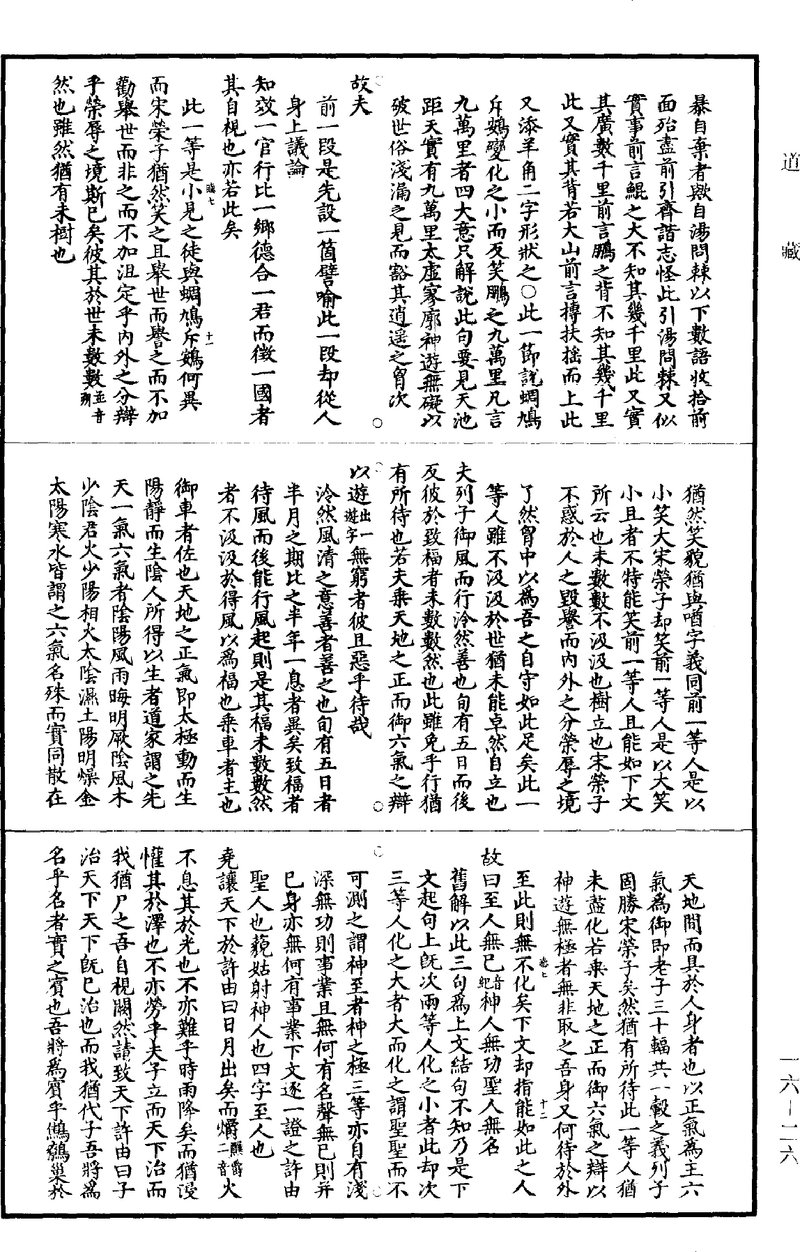 道藏
暴自棄者歟自湯問棘以下數語收拾前
面殆盡前引齊諧志怪此引湯問棘又似
實事前言鯤之大不知其幾千里此又實
其廣數千里前言鵬之背不知其幾千里
此又實其背若大山前言摶扶搖而上此
又添羊角二字形狀之○此一節說蜩鳩
斥鷃變化之小而反笑鵬之九萬里凡言
九萬里者四大意只解說此句要見天池
距天實有九萬里太虛寥廓神遊無礙以
破世俗淺漏之見而豁其逍遥之胷次
故夫
前一段是先設一箇譬喻此一段却從人
身上議論
知效一官行比一鄉德合一君而徵一國者
其自視也亦若此矣
此一等是小見之徒與蜩鳩斥鷃何異
而宋榮子猶然笑之且舉世而譽之而不加
勸舉世而非之而不加沮定乎內外之分辯
乎榮辱之境斯已矣彼其於世未數數並音朔
然也雖然猶有未樹也
猶然笑貌猶與啫字義同前一等人是以
小笑大宋榮子却笑前一等人是以大笑
小且者不特能笑前一等人且能如下文
所云也未數數不汲汲也樹立也宋榮子
不惑於人之毀譽而內外之分榮辱之境
了然胷中以為吾之自守如此足矣此一
等人雖不汲汲於世猶未能卓然自立也
夫列子御風而行泠然善也旬有五日而後
反彼於致福者未數數然也此雖免乎行猶
有所待也若夫乘天地之正而御六氣之辯
以遊出一遊字無窮者彼且惡乎待哉
泠然風清之意善者善之也旬有五日者
半月之期比之半年一息者異矣致福者
待風而後能行風起則是其福未數數然
者不汲汲於得風以為福也乘車者主也
御車者佐也天地之正氣即太極動而生
陽靜而生陰人所得以生者道家謂之先
天一氣六氣者陰陽風雨晦明厥陰風木
少陰君火少陽相火太陰濕土陽明燥金
太陽寒水皆謂之六氣名殊而實同散在
天地間而具於人身者也以正氣為主六
氣為御即老子三十輻共一轂之義列子
固勝宋榮子矣然猶有所待此一等人猶
未盡化若乘天地之正而御六氣之辯以
神遊無極者無非取之吾身又何待於外
至此則無不化矣下文却指能如此之人
故曰至人無己音紀神人無功聖人無名
舊解以此三句為上文結句不知乃是下
文起句上既次兩等人化之小者此却次
三等人化之大者大而化之謂聖聖而不
可測之謂神至者神之極三等亦自有淺
深無功則事業且無何有名聲無己則并
已身亦無何有事業下文逐一證之許由
聖人也藐姑射神人也四子至人也
堯讓天下於許由曰日月出矣而爝火
不息其於光也不亦難乎時雨降矣而猶浸
灌其於澤也不亦勞乎夫子立而天下治而
我猶尸之吾自視闕然請致天下許由曰子
治天下天下既已治也而我猶代子吾將為
名乎名者實之賓也吾將為賓乎鷦鷯巢於
一六—二六